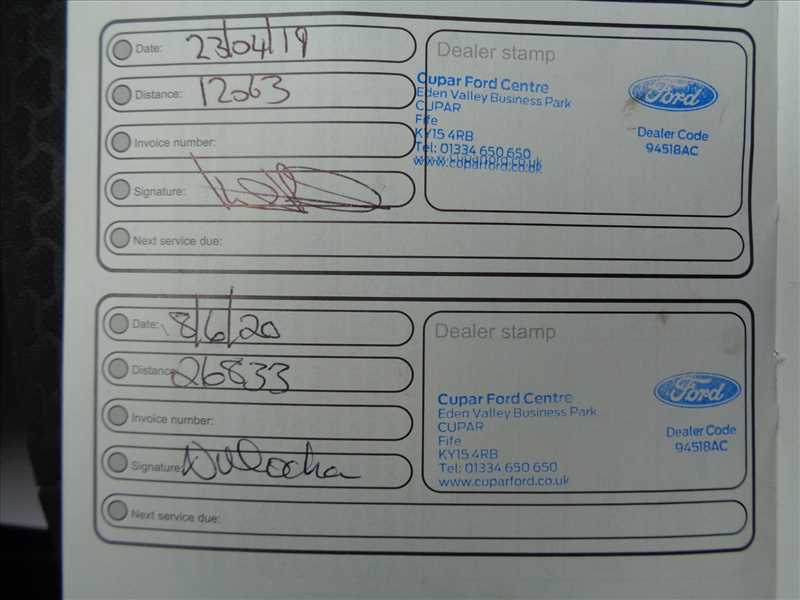 Date: 23/04/19
Distance: 12063
Invoice number:
Signature:
Next service due:
Dealer stamp
Cupar Ford Centre
Eden Valley Business Park
CUPAR
Fife
KY15 4RB
Tel: 01334 650 650
www.cuparford.co.uk
Ford
Dealer Code
94518AC
Date: 8/6/20
Distance 26833
Invoice number:
Signature:
Next service due:
Dealer stamp
Cupar Ford Centre
Eden Valley Business Park
CUPAR
Fife
KY15 4RB
Tel: 01334 650 650
www.cuparford.co.uk
Ford
Dealer Code
94518AC